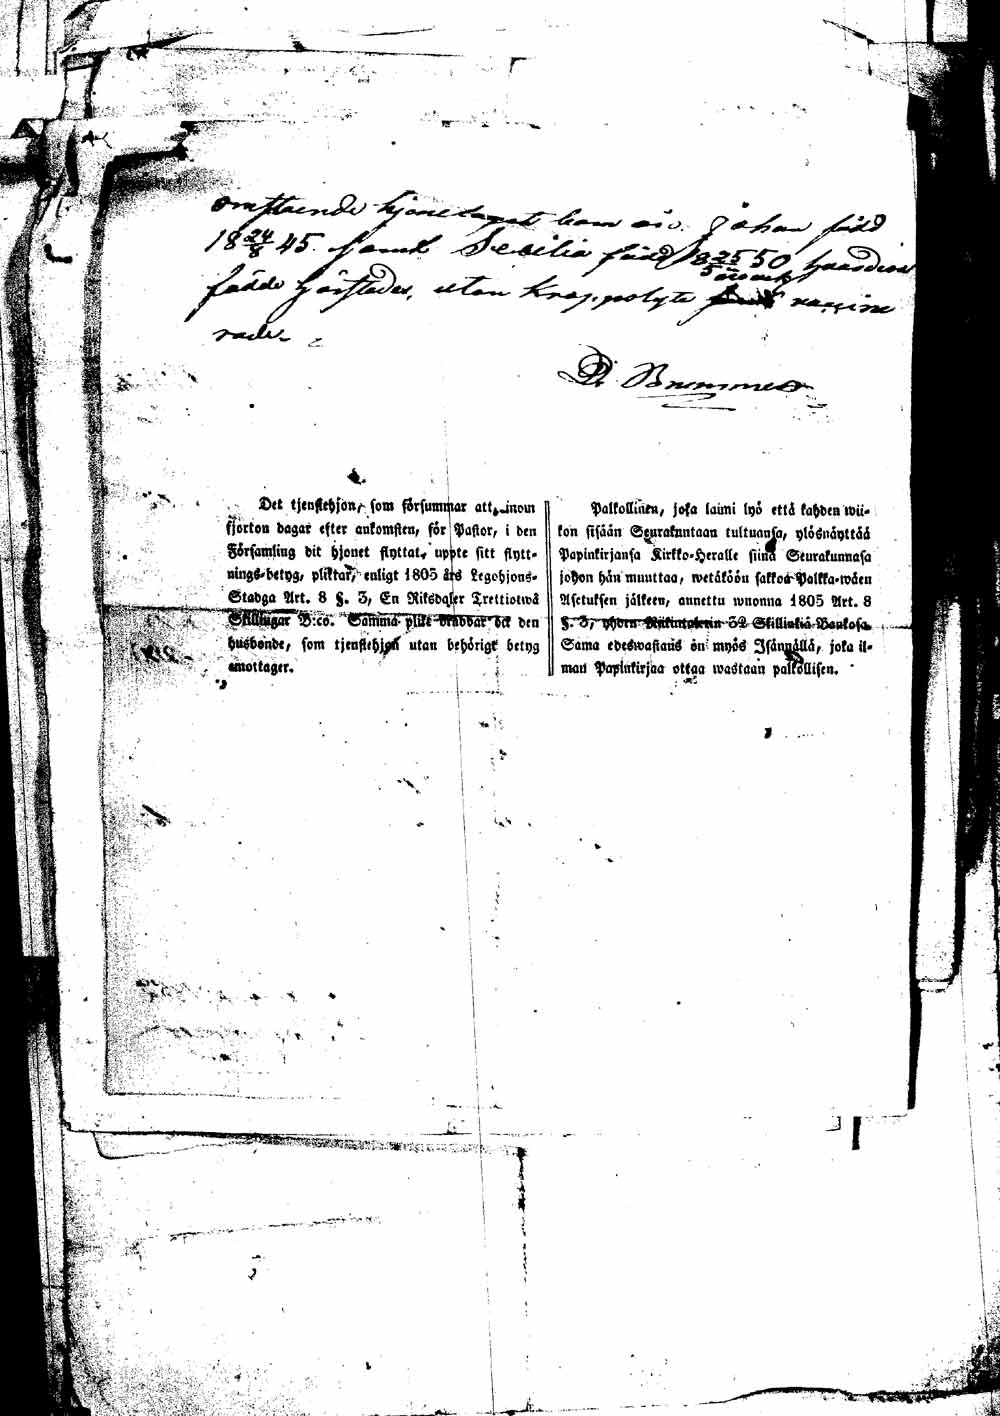 omstående hjonelagets barn äro. Johan född
18 24/8 45. samt Secilia född 18 25/5 50
födde härstädes, utan Kroppslyte vaccine
rade.
Bremmer
Det tjenstehjon, som försummar att, inom
fjorton dagar efter ankomsten, för Pastor, i den
Församling dit hjonet flyttat, uppte sitt flytt-
nings-betyg, pliktar, enligt 1805 års Legohjons-
Stadga Art. 8 §. 3, En Riksdaler Trettiotwå
Skillingar B:co. Samma plikt drabbar ock den
husbonde, som tjenstehjon utan behörigt betyg
emottager.
Palkollinen, joka laimi lyö että kahden wii-
kon sisään Seurakuntaan tultuansa, ylösnäyttää
Papinkirjansa Kirkko-Heralle siinä Seurakunnasa
johon hän muuttaa, wetäköön sakkoa Palkka-wäen
Asetuksen jälkeen, annettu wuonna 1805 Art. 8
§. 3, yhden Riikintalerin 32 Skillinkiä Bankosa
Sama edeswastaus on myös Isännällä, joka il-
man Papinkirjaa ottaa wastaan palkollisen.